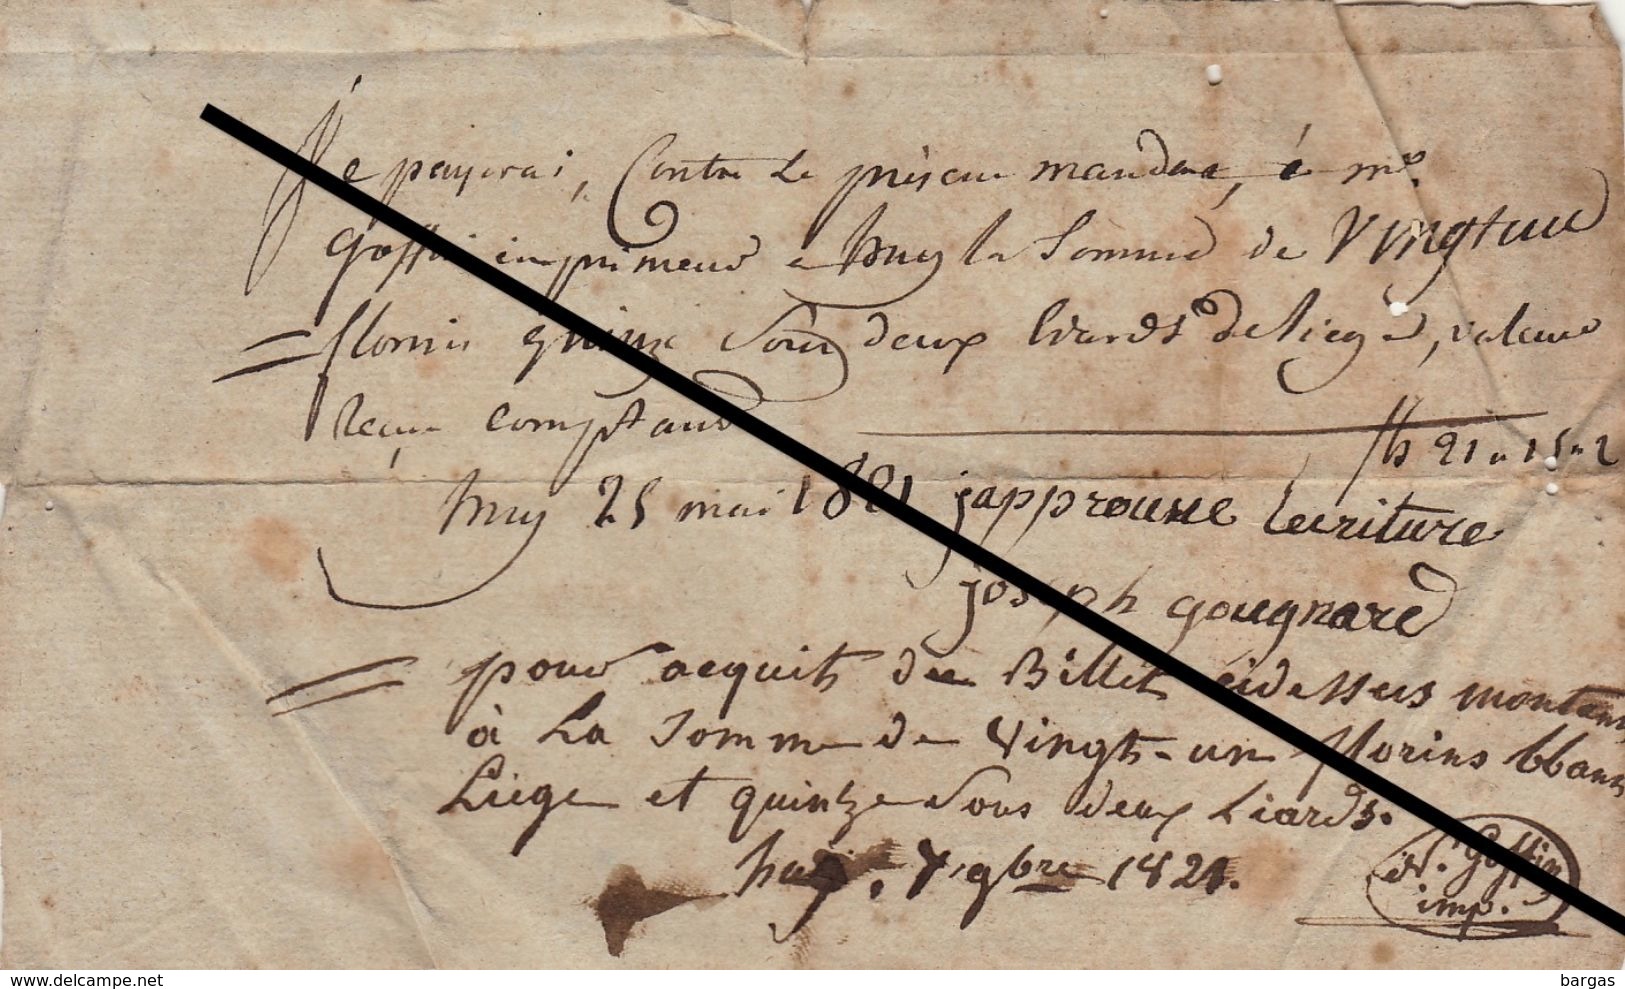 Je payerai, Contre le présent mandat, à mr.
Goffin imprimeur a huy la Somme de Vingtun
florins quinze Sous deux liards de liege, valeur
recue comptant
fb 21 " 15 " 2
huy 25 mai 1821 japprouve lecriture
joseph gougnard
pour acquit du Billet cidessus montant
à La Somme de Vingt-un florins bbant
Liége et quinze sous deux Liards.
huy, 7bre 1821.
N. Goffin
imp.
bargas